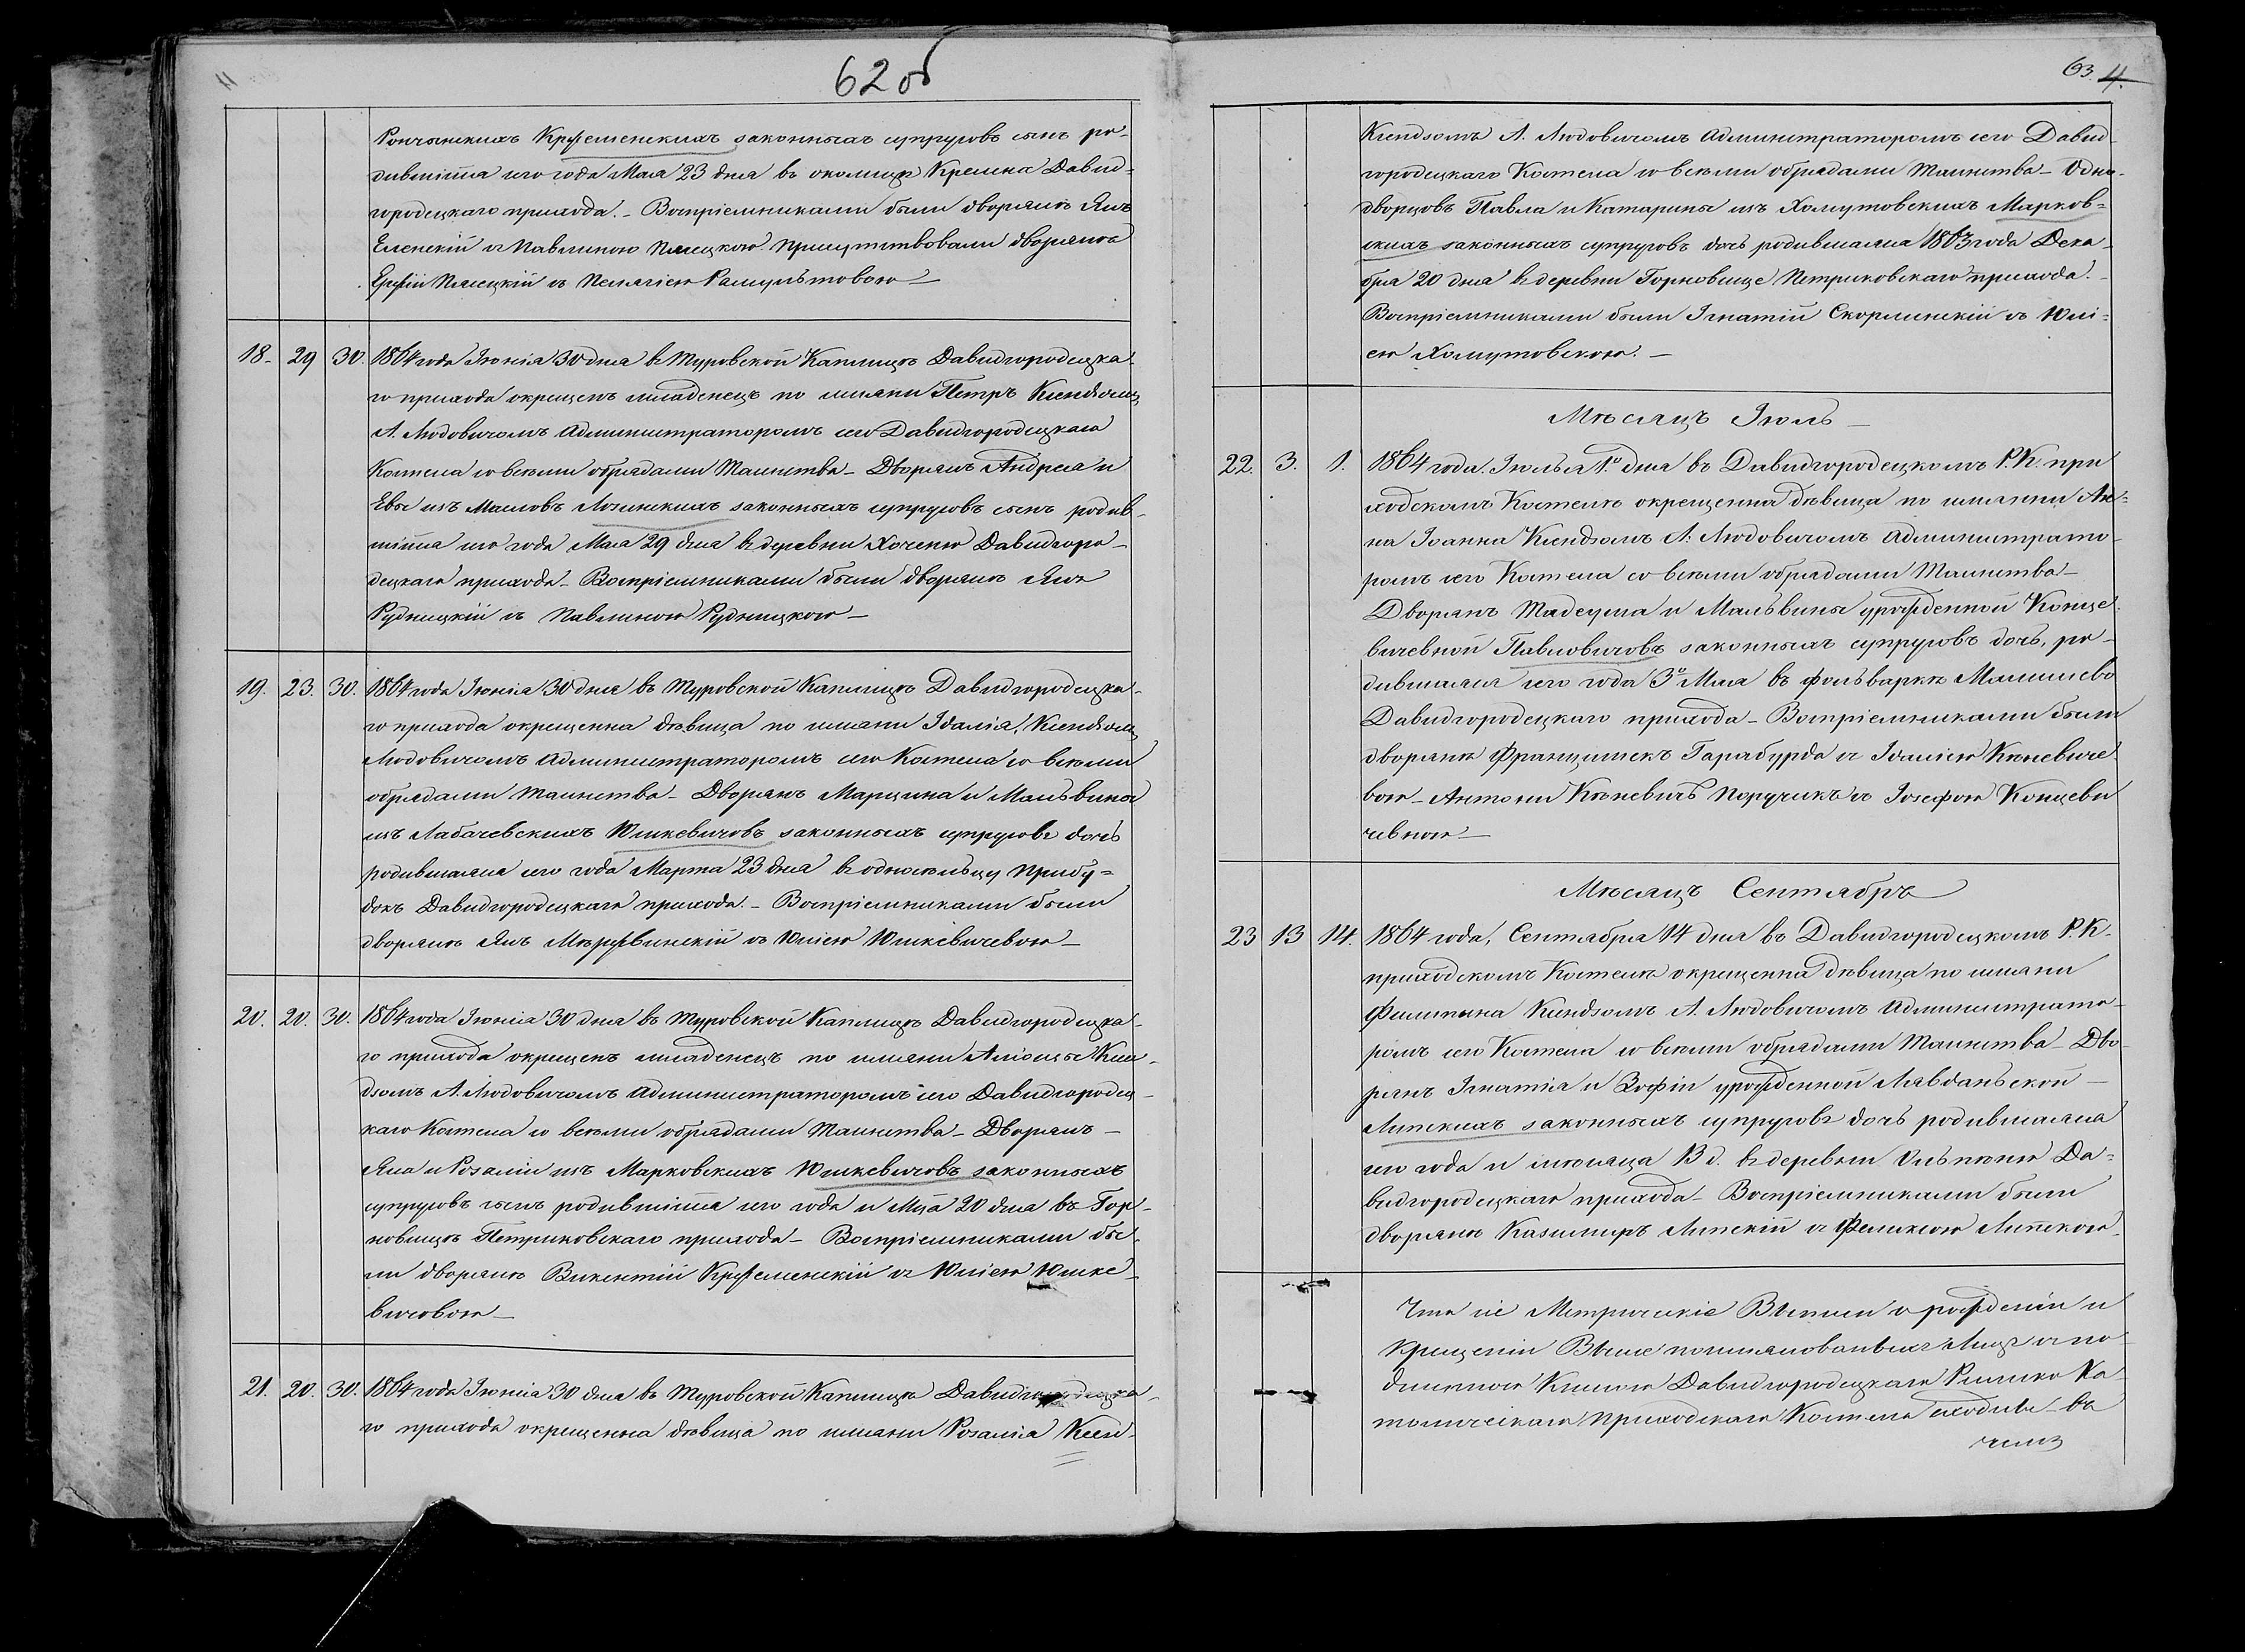 62 об
Кржеменскихъ законныхъ супруговъ сынъ ро-
дившійся сего года Мая 23 дня въ околицѣ Кремна Давид-
городецкаго прихода. - Воспріемниками были дворянѣ Янъ
Еленскій съ Павлиною Плесцкою. Присутствовали дворянѣ
Плесцкій съ Пелагіею Рамультовою
18. 29 30. 1864 года Іюнія 30 дня въ Туровской Каплицѣ Давидгородецка-
го прихода окрещенъ младенецъ по имяни Петръ Ксендзомъ
А. Людовичомъ Администраторомъ сего Давидгородецкаго
Костела со всѣми обрядами Таинства - Дворянъ Андрея и
Евы изъ Масловъ Лозинскихъ законныхъ супруговъ сынъ родив-
шійся сего года Мая 29 дня въ деревни Хоченю Давидгоро-
децкаго прихода - Воспріемниками были дворянѣ Янъ
Рудницкій съ Павлиною Рудницкою
19. 23. 30. 1864 года Іюнія 30 дня въ Туровской Каплицѣ Давидгородецка-
го прихода окрещенна дѣвица по имяни Идалія, Ксендзомъ
Людовичомъ Администраторомъ сего Костела со всѣми
обрядами Таинства - Дворянъ Марцина и Мальвины
изъ Лабачевскихъ Юшкевичовъ законныхъ супруговъ дочь
родившаяся сего года Марта 23 дня въ односельцу Прибу-
докъ Давидгородецкаго прихода. - Воспріемниками были
дворянѣ Янъ Мержвинскій съ Юліею Юшкевичевою
20. 20. 30. 1864 года Іюнія 30 дня въ Туровской Каплицѣ Давидгородецка-
го прихода окрещенъ младенецъ по имяни Алюизы Ксен-
дзомъ А. Людовичомъ Администраторомъ сего Давидгородец-
каго Костела со всѣми обрядами Таинства - Дворянъ
Яна и Розаліи изъ Марковскихъ Юшкевичовъ законныхъ
супруговъ сынъ родившійся сего года и Мца 20 дня въ Гор-
новищѣ Петриковскаго прихода - Воспріемниками бы-
ли дворянѣ Викентій Кржеменскій съ Юліею Юшке-
вичовою
21. 20. 30. 1864 года Іюнія 30 дня въ Туровской Каплицѣ Давидгородецка-
го прихода окрещенна дѣвица по имяни Розалія Ксен-
63. 4.
Ксендзомъ А. Людовичомъ Администраторомъ сего Давид-
городецкаго Костела со всѣми обрядами Таинства - Одно-
дворцовъ Павла и Катарины изъ Хомутовскихъ Марков-
скихъ законныхъ супруговъ дочь родившаяся 1863 года Дека-
бря 20 дня въ деревни Горновище Петриковскаго прихода. -
Воспріемниками были Игнатій Скорминскій съ Юлі-
ею Хомутовскою. -
Мѣсяцъ Іюль
22. 3. 1. 1864 года. Іюлья 1го дня въ Давидгородецкомъ Р. К. при
ходскомъ Костелѣ окрещенна дѣвица по имянни Ан-
на Іоанна Ксендзомъ А. Людовичомъ Администрато-
ромъ сего Костела со всѣми обрядами Таинства -
Дворянъ Тадеуша и Мальвины урожденной Конце-
вичевной Павловичовъ законныхъ супруговъ дочь, ро-
дившаяся сего года 3го Мая въ фольваркѣ Малишево
Давидгородецкаго прихода - Воспріемниками были
дворянѣ Францишекъ Гарабурда съ Идаліею Кѣневиче-
вою - Антони Кѣневичъ Поручикъ съ Іозефою Концеви
чевною
Мѣсяцъ Сентябръ
23 13 14. 1864 года, Сентября 14 дня въ Давидгородецкомъ Р. К.
приходскомъ Костелѣ окрещенна дѣвица по имяни
Филипина Ксендзомъ А. Людовичомъ Администрато-
ромъ сего Костела со всѣми обрядами Таинства - Дво-
рянъ Игнатія и Зофіи урожденной Лявданьской -
Липскихъ законныхъ супруговъ дочь родившаяся
сего года и мѣсяца 13 д. въ деревни Ольпеню Да-
видгородецкаго прихода - Воспріемниками были
дворянѣ Казимиръ Липскій съ Феликсою Липскою.
Что сіе Метрическіе Выписи о рожденіи и
Крещеніи Выше поимянованныхъ Лицъ съ по-
длинною Книгою Давидгородецкаго Римско Ка-
толическаго Приходскаго Костела сходны - въ